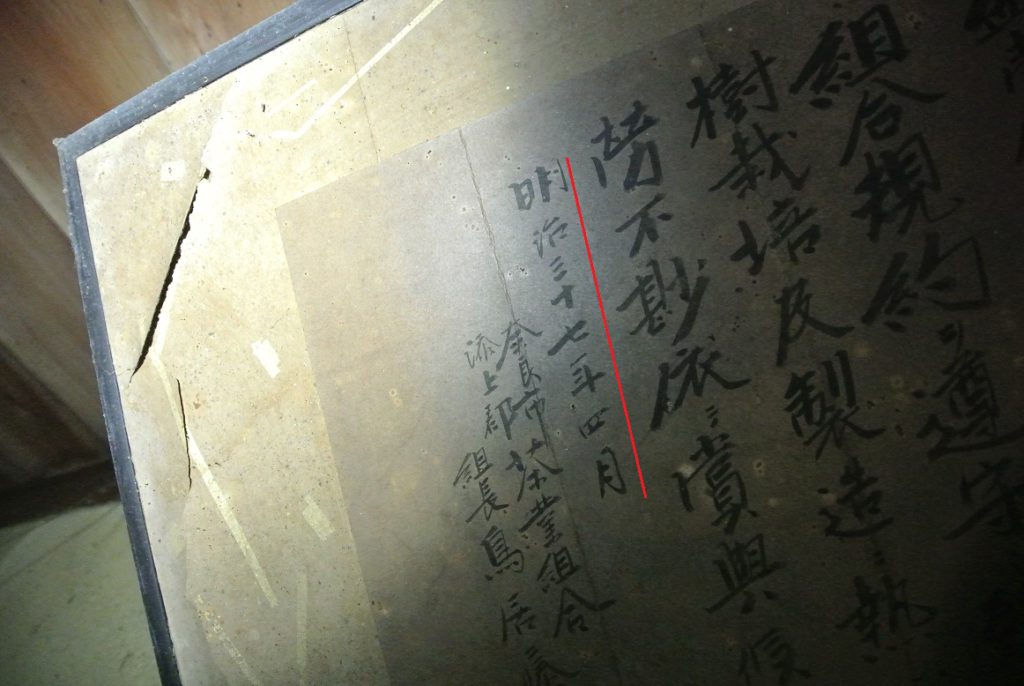 組合規約ヲ遵守
樹栽培及製造ニ熱
不尠依 賞與候
明治三十七年四月
奈良市
添上郡 茶業組合
組長鳥居